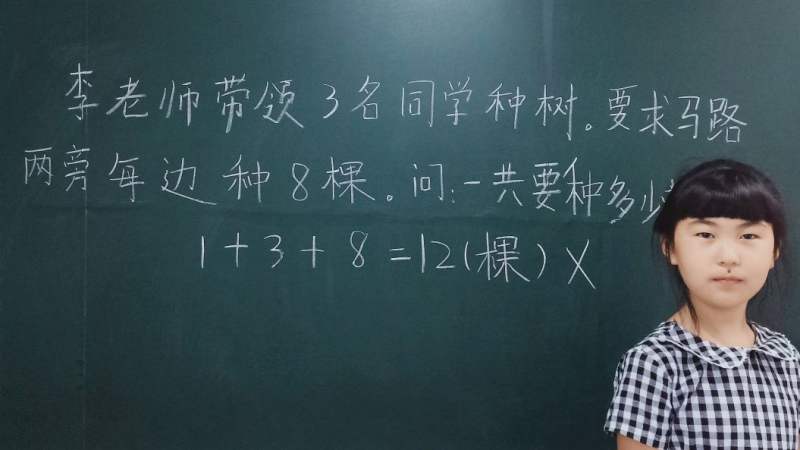 李老师带领3名同学种树。要求马路
两旁每边种8棵。问:一共要种多少
1+3+8=12(棵)X